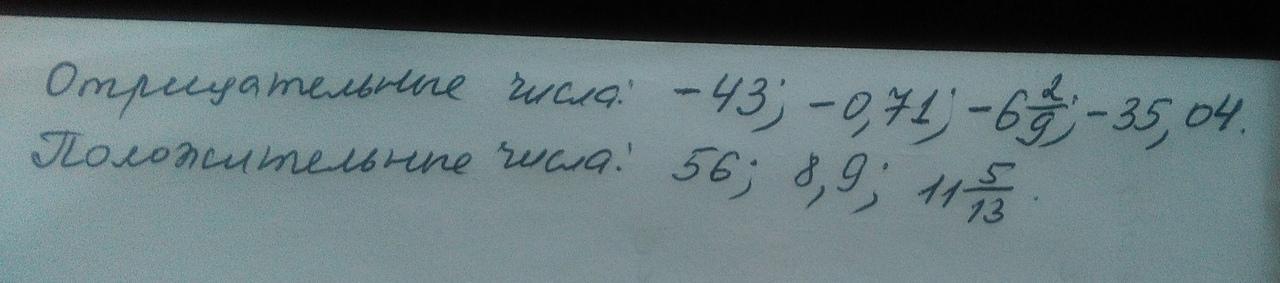 Отрицательные числа: -43; -0,71; -6 2/9; -35,04.
Положительные числа: 56; 8,9; 11 5/13.